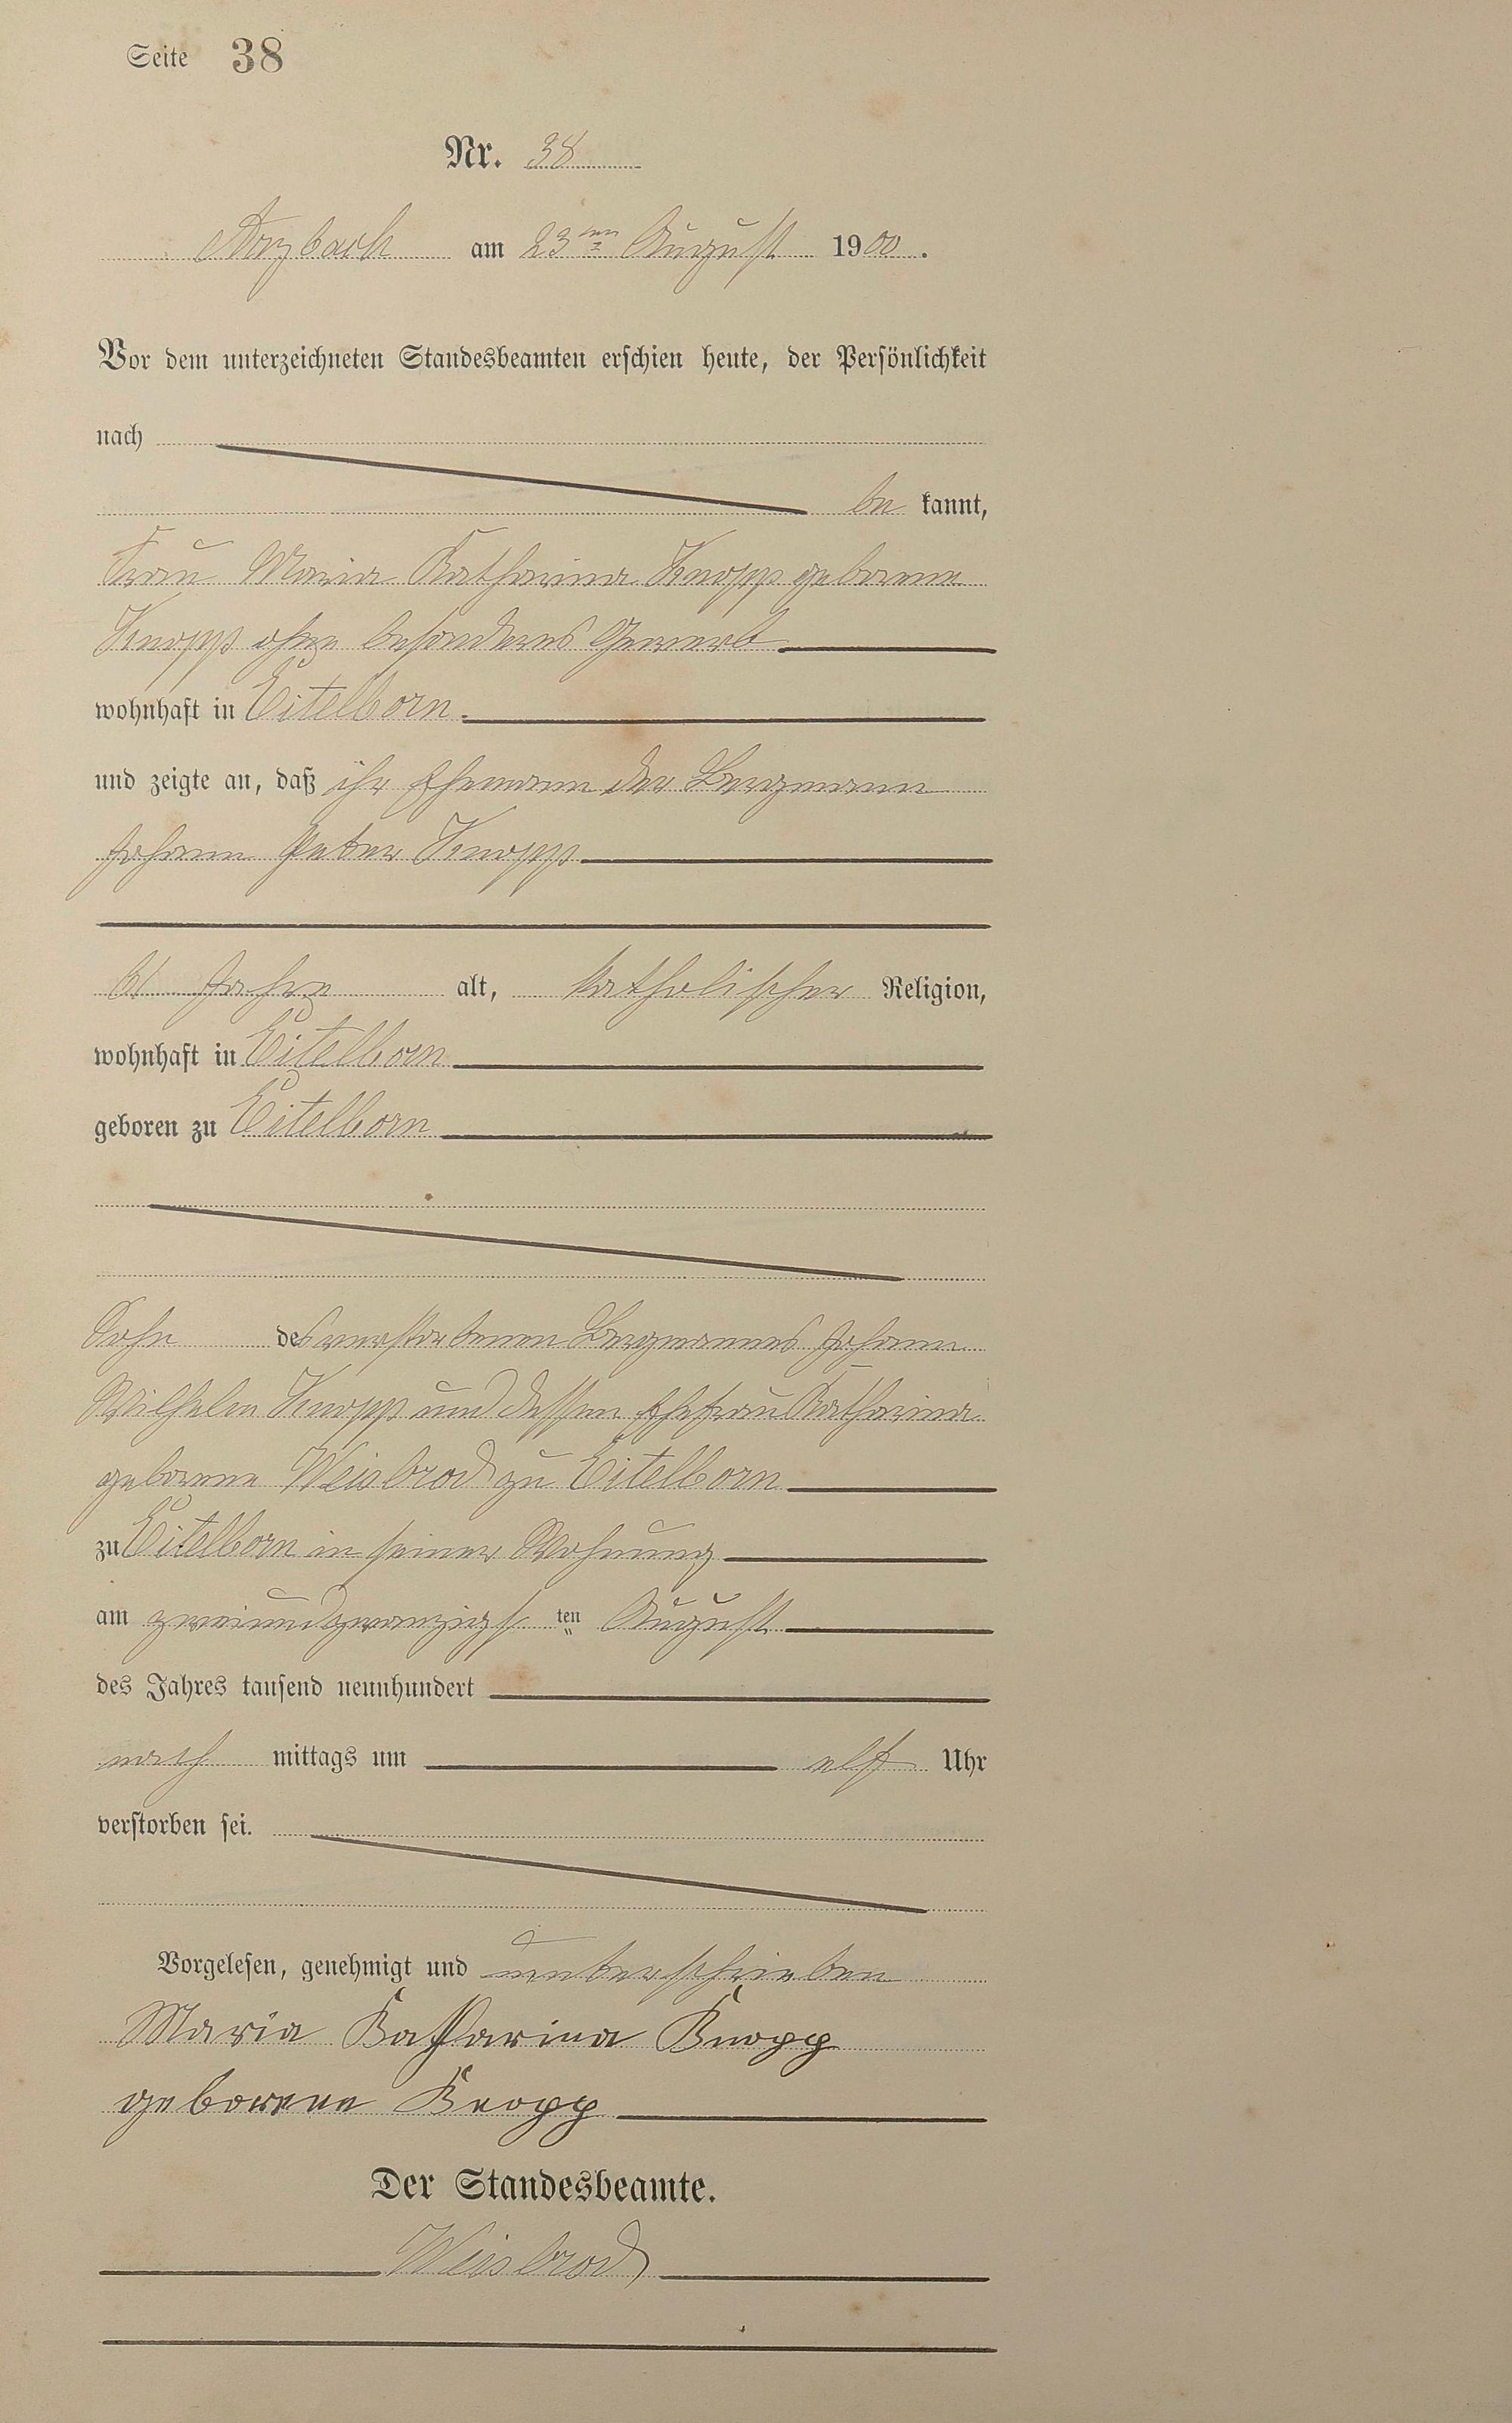 Seite 38
Nr. 38
Arzbach am 23ten August 1900.
Vor dem unterzeichneten Standesbeamten erschien heute, der Persönlichkeit
nach
be kannt,
Frau Maria Katharina Knopp geborene
Knopp ohne besonderes Gewerb
wohnhaft in Eitelborn.
und zeigte an, daß ihr Ehemann der Bergmann
Johann Peter Knopp
61 Jahre alt, katholischer Religion,
wohnhaft in Eitelborn
geboren zu Eitelborn
Sohn des verstorbenen Bergmannes Johann
Wilhelm Knopp und dessen Ehefrau Katharina
geborene Weisbrod zu Eitelborn
zu Eitelborn in seiner Wohnung
am zweiundzwanzigsten August
des Jahres tausend neunhundert
nach mittags um elf Uhr
verstorben sei.
Vorgelesen, genehmigt und unterschrieben
Maria Katharina Knopp
geborene Knopp
Der Standesbeamte.
Weisbrod